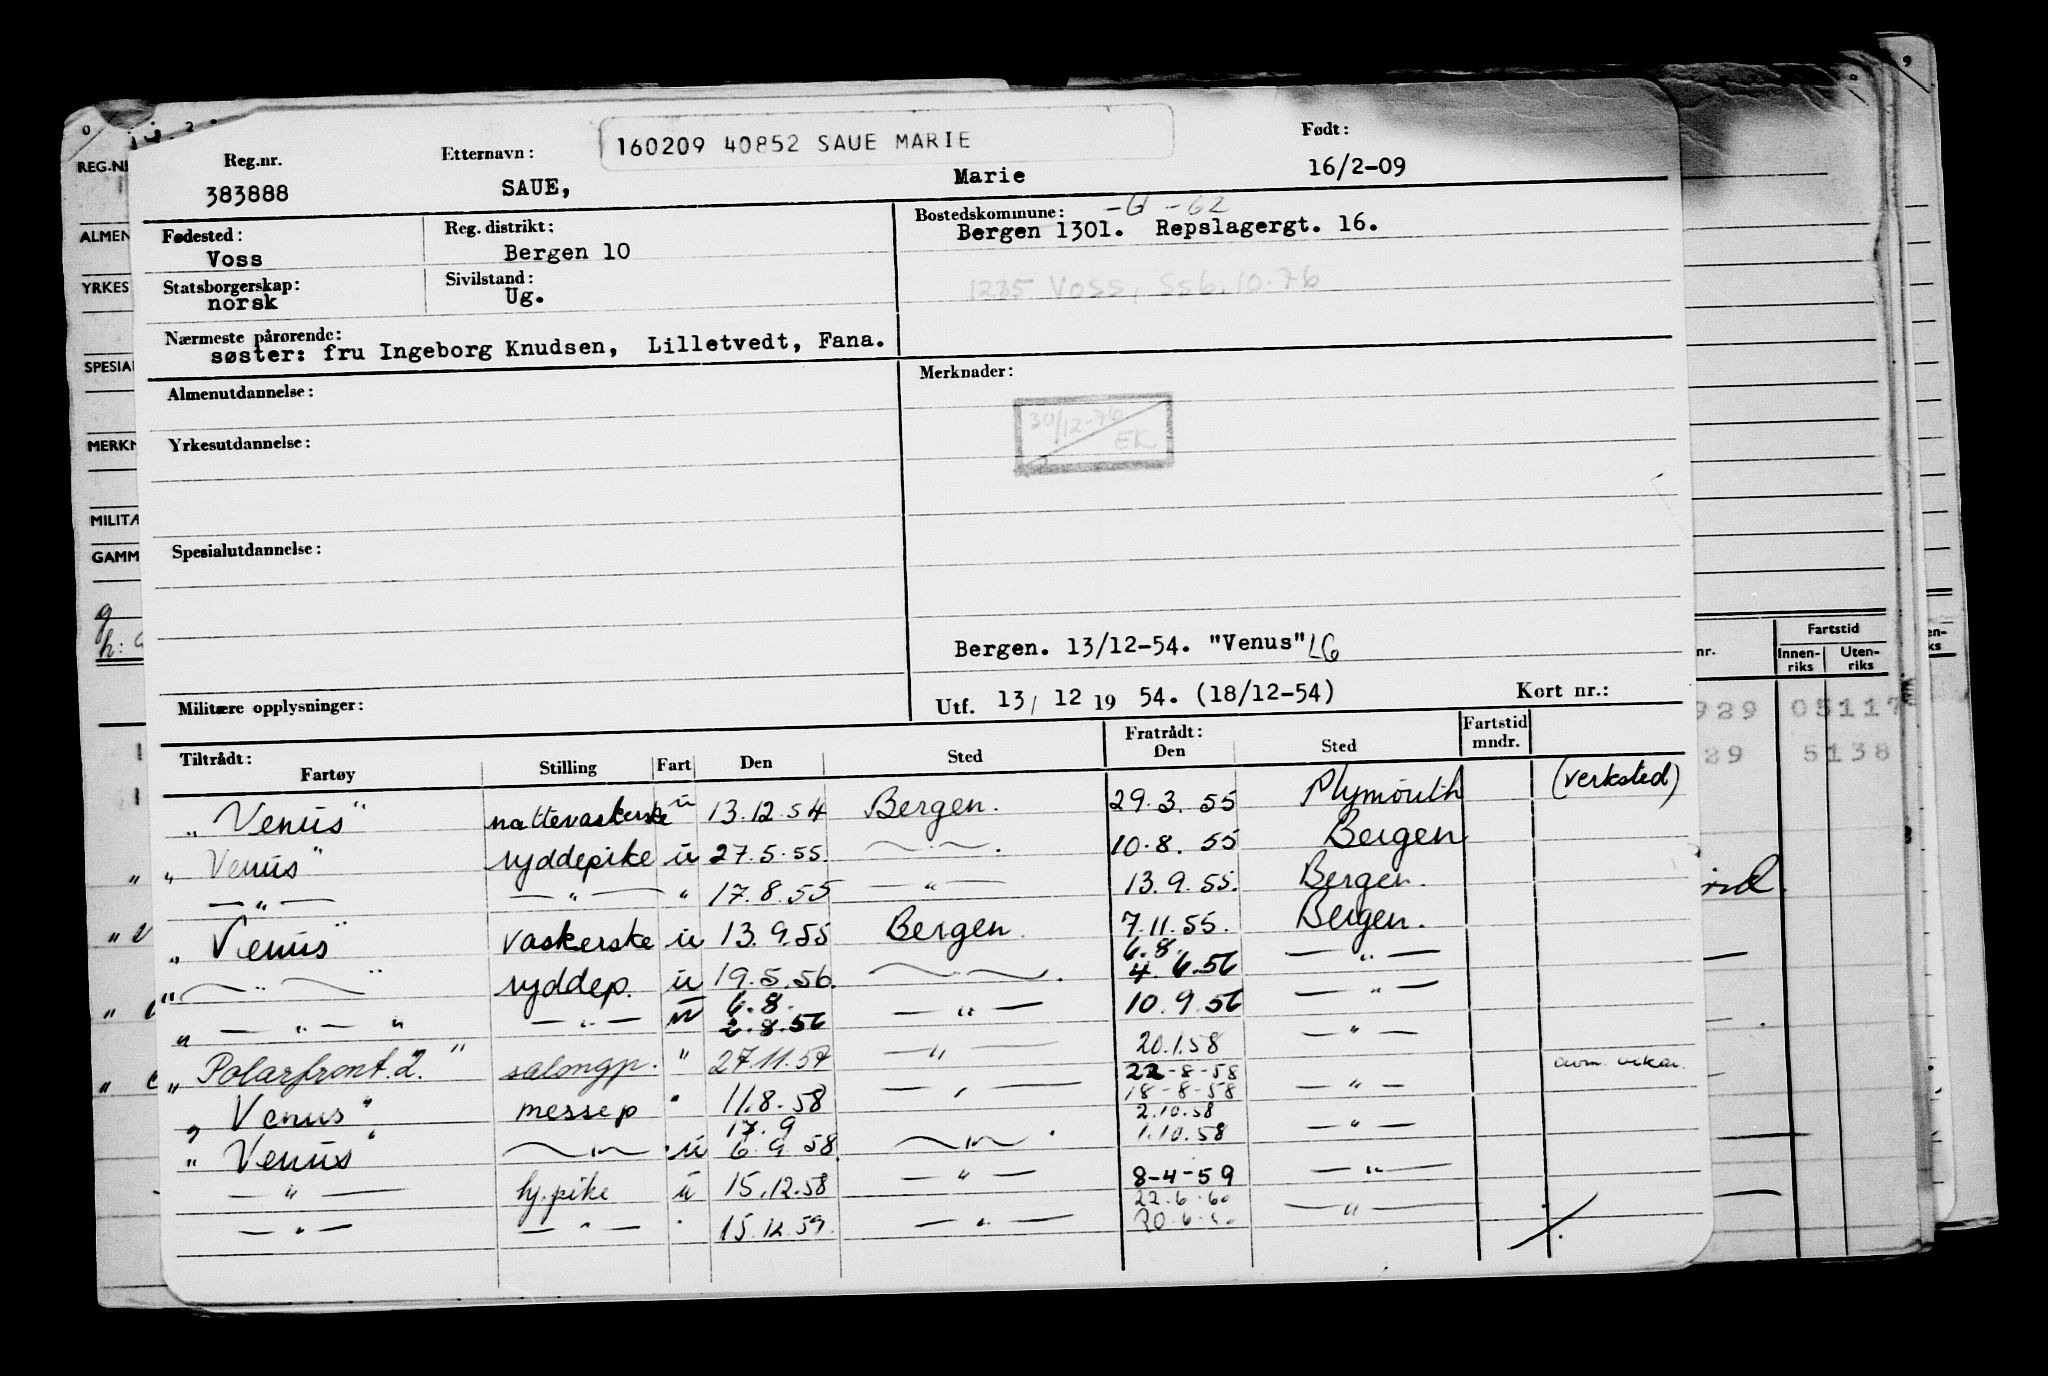 160209 40852 SAUE MARIE
Reg.nr. Etternavn: Født:
383888 SAUE, Marie 16/2-09
Fødested: Reg. distrikt: Bostedskommune:
Voss Bergen 10 Bergen 1301. Repslagergt. 16.
Statsborgerskap: Sivilstand:
norsk Ug. 1235 Voss, Ssb. 10.76
Nærmeste pårørende:
søster: fru Ingeborg Knudsen, Lilletvedt, Fana.
Almenutdannelse: Merknader:
30/12-76
EK
Yrkesutdannelse:
Spesialutdannelse:
Bergen. 13/12-54. "Venus" LG
Militære opplysninger: Utf. 13/ 12 19 54. (18/12-54) Kort nr.:
Tiltrådt: Fratrådt: Fartstid mndr.
Fartøy Stilling Fart Den Sted Den Sted
"Venus" nattevaskerske ü 13.12.54 Bergen. 29.3.55 Plymouth (verksted)
"Venus" ryddepike ü 27.5.55. —"—. 10.8.55 Bergen
—"— —"— " 17.8.55 —"— 13.9.55. Bergen.
"Venus" vaskerske ü 13.9.55 Bergen. 7.11.55. Bergen.
"—"—" ryddep. ü 19.5.56. —"—. 6.8. 4.6.56 —"—
"—"—" —"— ü 6.8. 2.8.56 —"— 10.9.56 —"—
"Polarfront.2." salongp. " 27.11.57 —"— 20.1.58 —"—
"Venus" messep " 11.8.58 —"— 22-8-58 18-8-58 —"—
"Venus" —"— ü 17.9 6.9.58. —"—. 2.10.58 1.10.58 —"—
—"— hj.pike ü 15.12.58 —"— 8-4-59 —"—
—"— —"— " 15.12.59. —"— 22.6.60 20.6.60 —"—
REG.N
ALMEN
YRKES
SPESIAL
MERKN
MILITÆ
GAMM
nr. Fartstid
Innen-riks Uten-riks
929 05117
29 5138